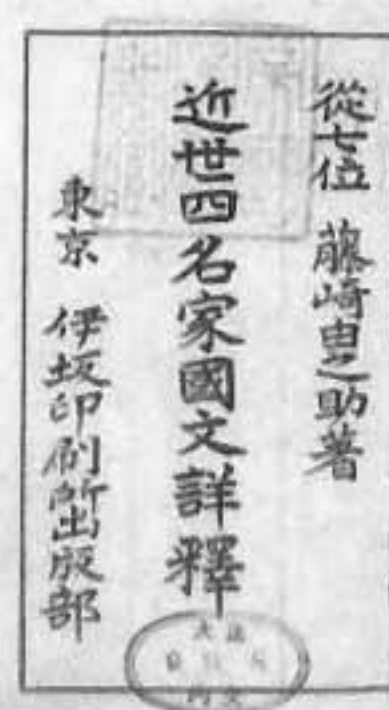 從七位 藤崎由之助著
近世四名家國文詳釋
東京 伊坂印刷所出版部